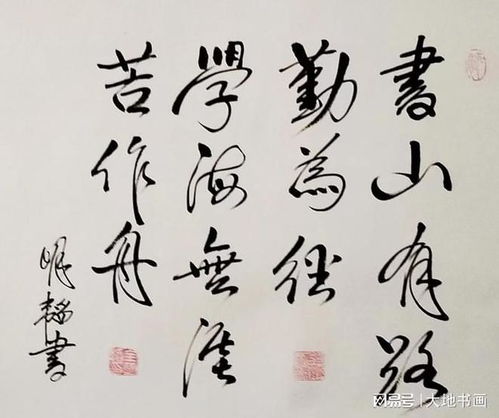 書山有路
勤為徑
學海無涯
苦作舟
明
書
网易号 | 大地书画